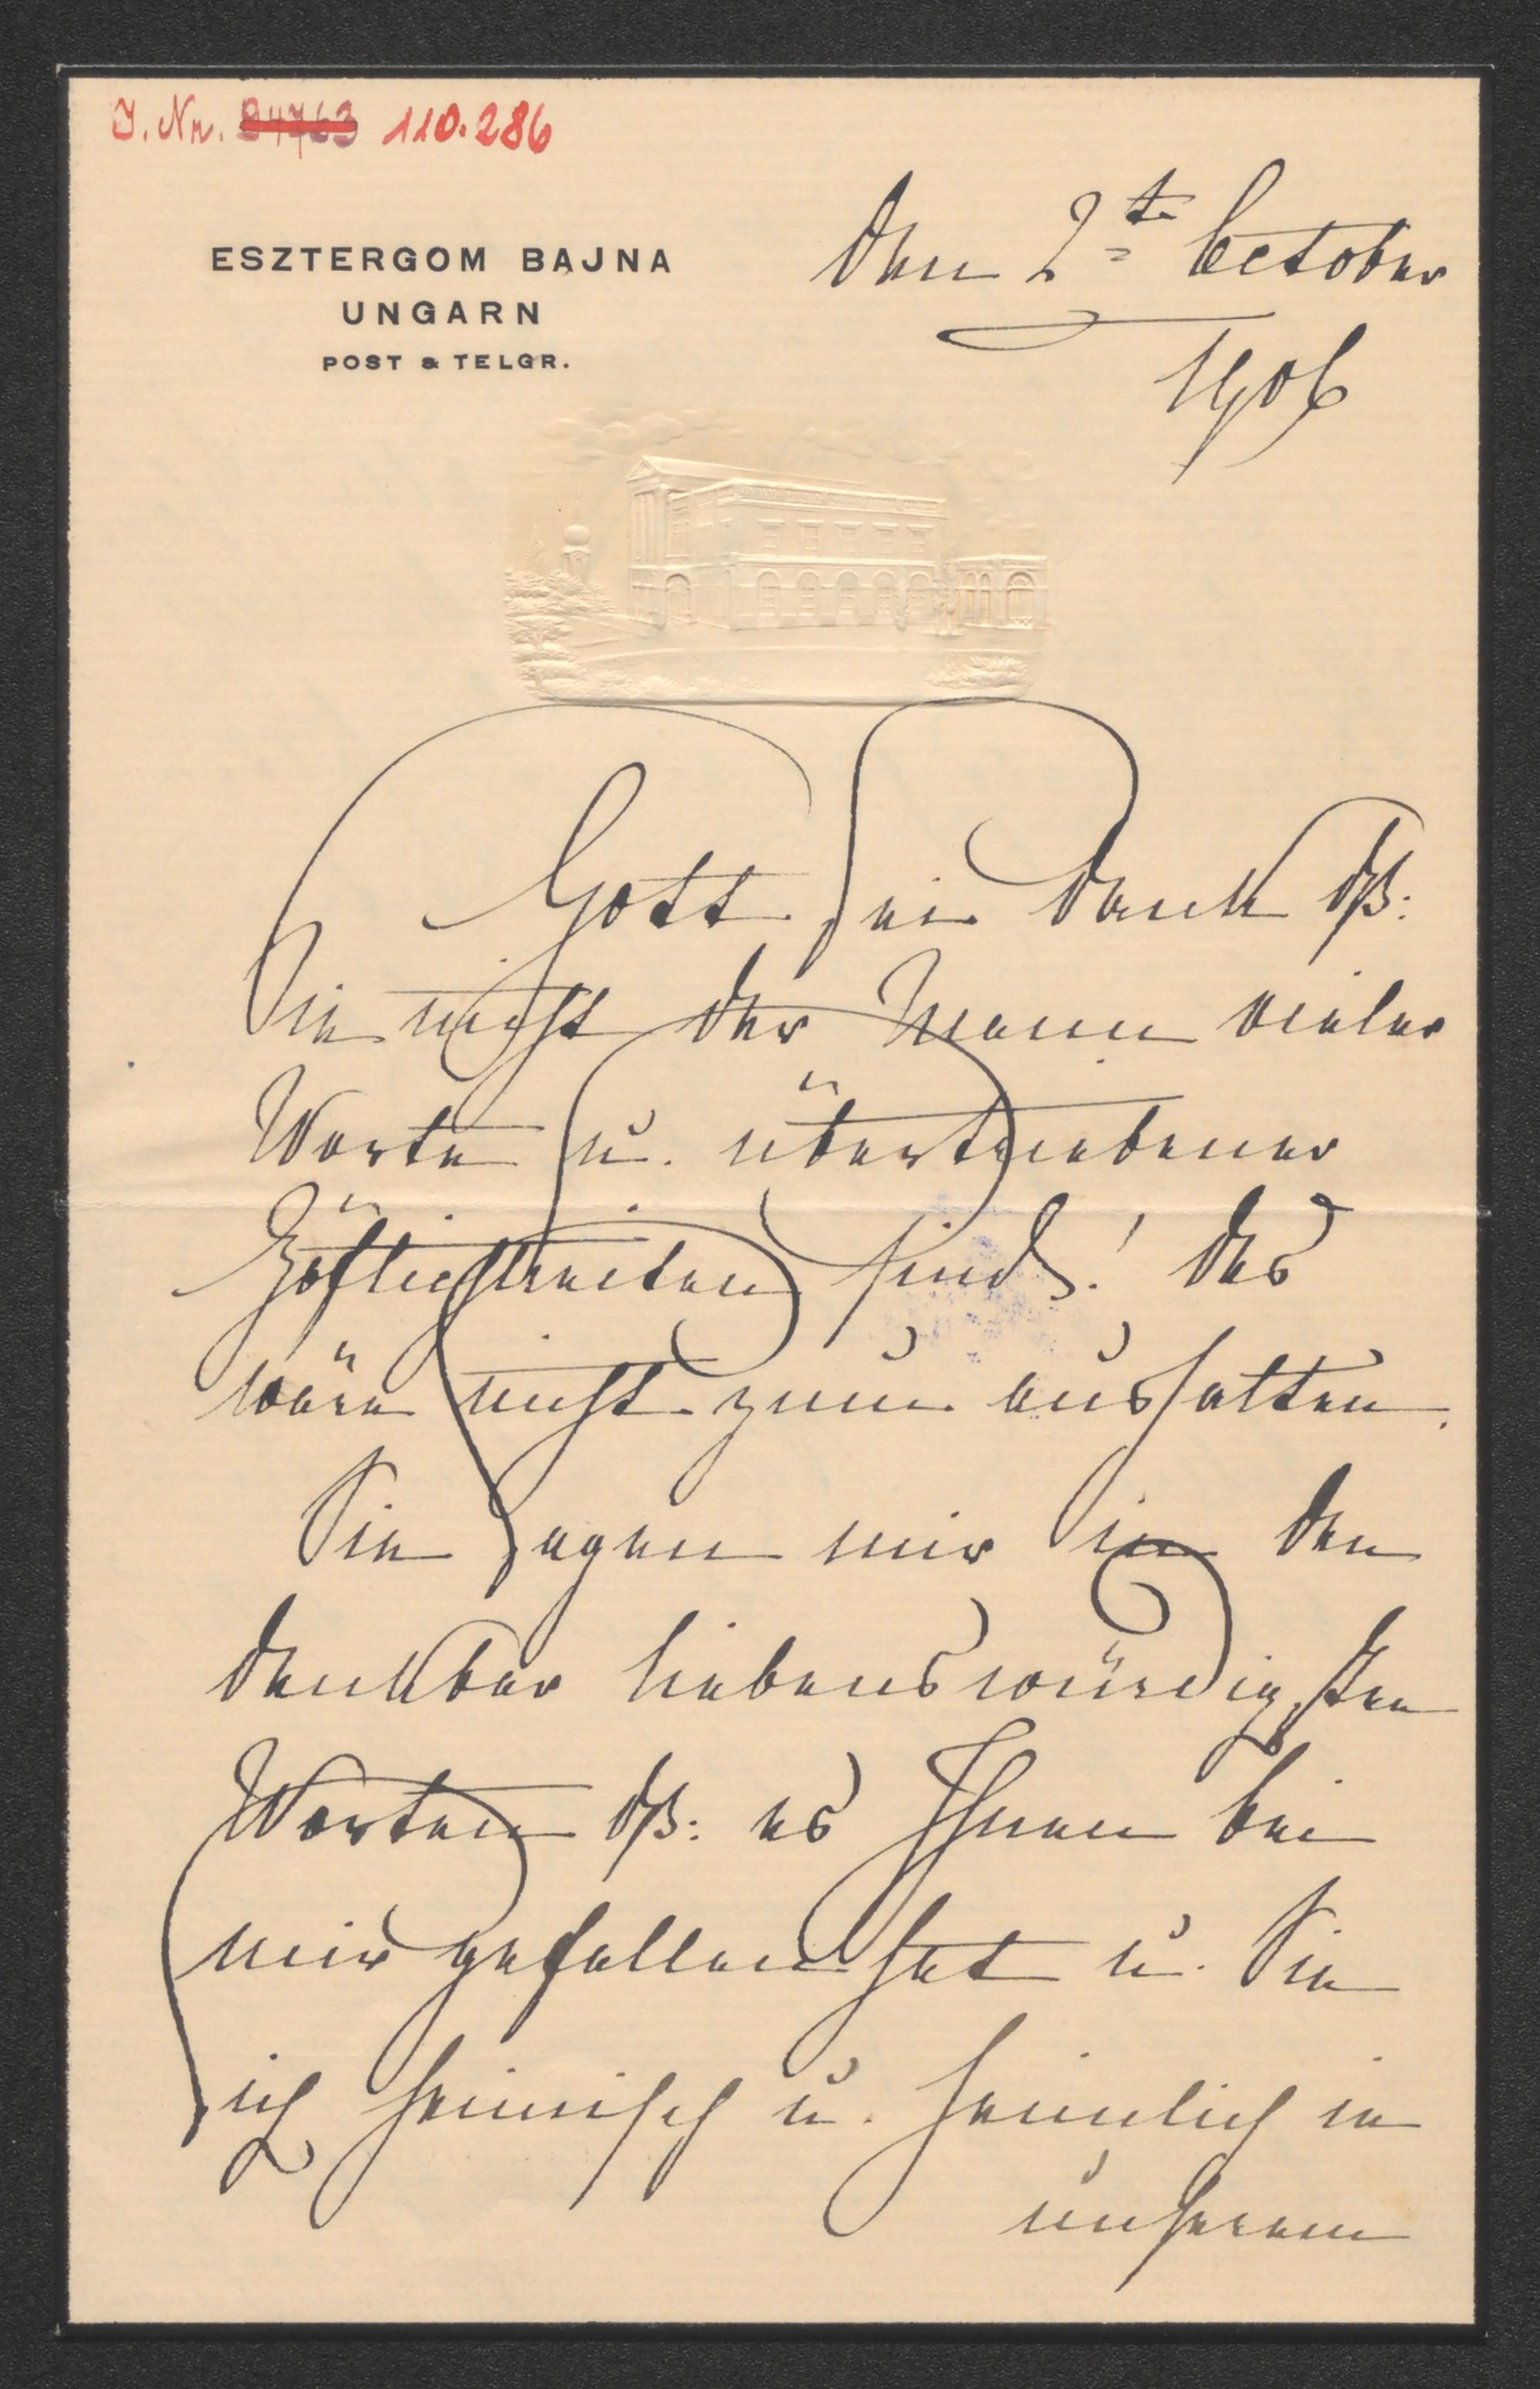 J. Nr. 84763 110.286
ESZTERGOM BAJNA
UNGARN
POST & TELGR.
den 2te October
1906
Gott sei Dank dß:
Sie nicht der Mann vieler
Worte u. übertriebener
Höflichkeiten sind! das
wäre nicht zum aushalten.
Sie sagen mir in den
denkbar liebenswürdigsten
Worten dß: es Ihnen bei
mir gefallen hat u. Sie
sich heimisch u. heimlich in
unserem